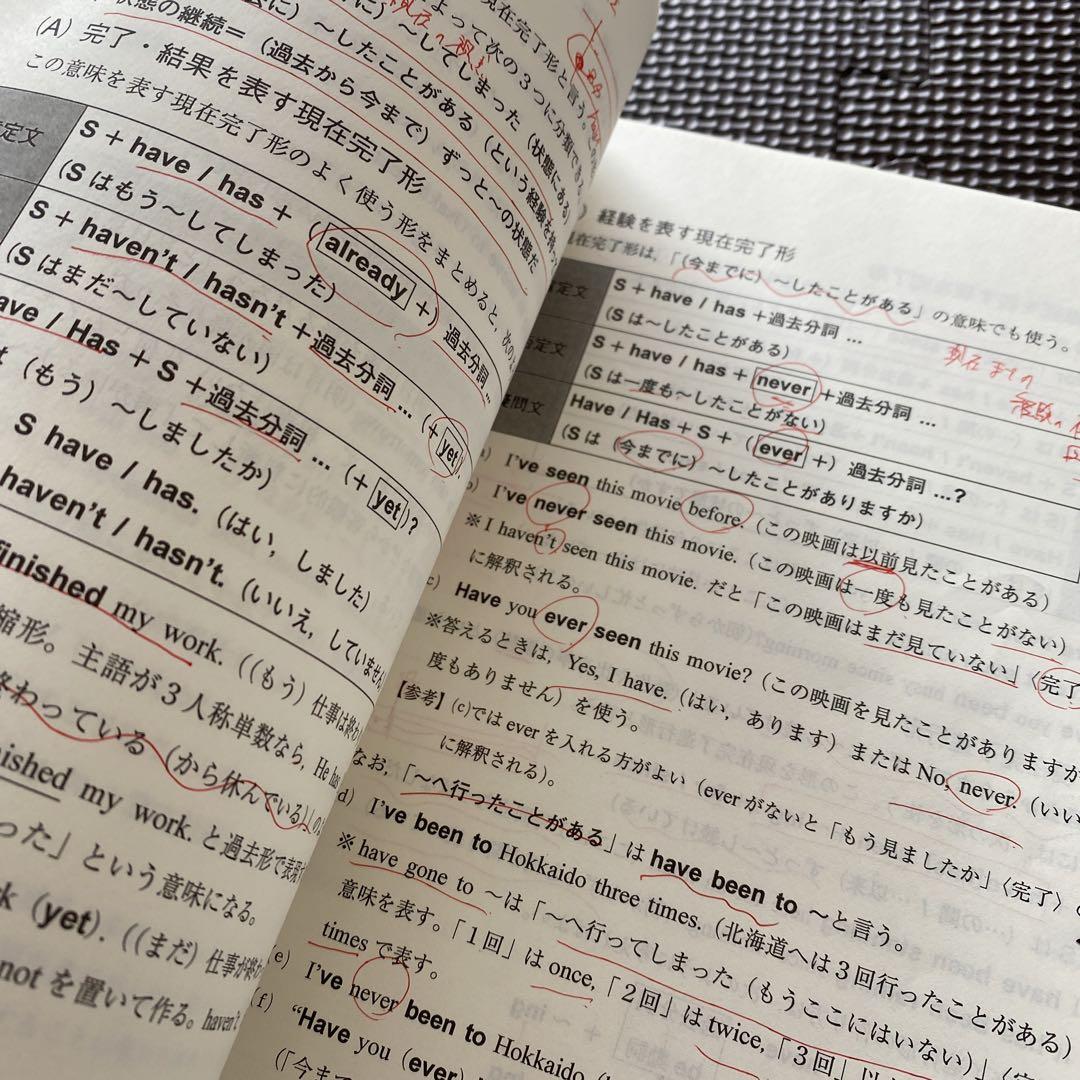 状態の継続=（過去から今まで）ずっと〜の状態だ
（過去に）〜したことがある（という経験を持っ
〜してしまった（状態にある）
よって次の3つに分類できる
現在完了形と言う。
(A) 完了・結果を表す現在完了形
この意味を表す現在完了形のよく使う形をまとめると、次の
定文
S + have / has + (already +) 過去分詞 …
(S はもう〜してしまった)
S + haven't / hasn't + 過去分詞 … (+ yet)
(S はまだ〜していない)
ave / Has + S + 過去分詞 … (+ yet)?
は (もう) 〜しましたか)
S have / has. (はい，しました)
haven't / hasn't. (いいえ，していません
finished my work. ((もう) 仕事は終わ
縮形。主語が3人称単数なら, He has
終わっている (から休んでいる)」の
nished my work. と過去形で表現
った」という意味になる。
k (yet). ((まだ) 仕事が終わ
not を置いて作る。haven't
) 経験を表す現在完了形
現在完了形は,「(今までに) 〜したことがある」の意味でも使う。
定文
S + have / has + 過去分詞 …
(S は〜したことがある)
定文
S + have / has + never + 過去分詞 …
(S は一度も〜したことがない)
疑問文
Have / Has + S + (ever +) 過去分詞 …?
(S は (今までに) 〜したことがありますか)
現在までの
) I've seen this movie before. (この映画は以前見たことがある)
) I've never seen this movie. (この映画は一度も見たことがない)
※ I haven't seen this movie. だと「この映画はまだ見ていない」〈完了
に解釈される。
c) Have you ever seen this movie? (この映画を見たことがありますか
※答えるときは, Yes, I have. (はい, あります) または No, never. (いい
度もありません) を使う。
【参考】(c)では ever を入れる方がよい (ever がないと「もう見ましたか」〈完了〉
に解釈される)。
なお,「〜へ行ったことがある」は have been to 〜と言う。
d) I've been to Hokkaido three times. (北海道へは3回行ったことがある)
※ have gone to 〜は「〜へ行ってしまった (もうここにはいない)」
意味を表す。「1回」は once,「2回」は twice,「3回」以
times で表す。
(e) I've never been to Hokkaido.
f) “Have you (ever)
(「今まで